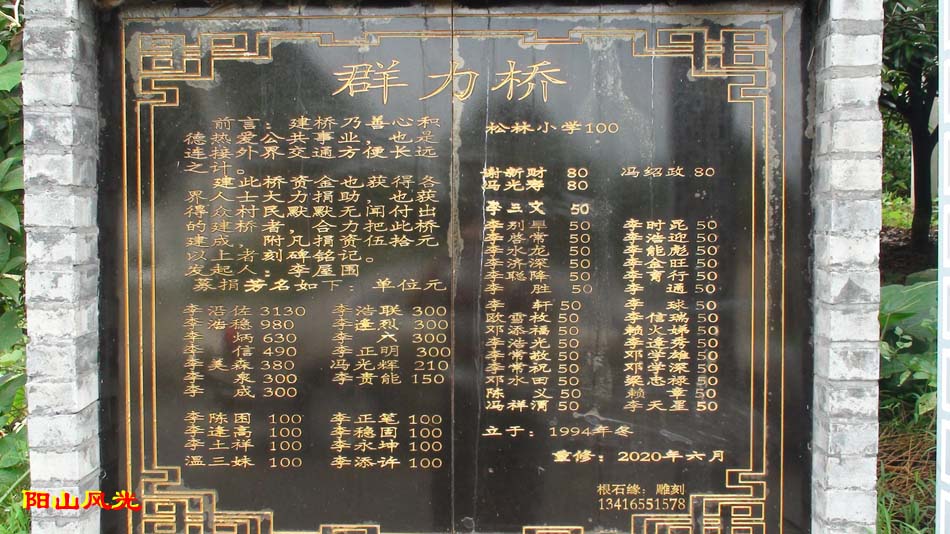 群力桥
前言：建桥乃善心和
德热爱公共事业，也是
连接外界交通方便长远
之计。
建此桥资金也获得各
界人士大力捐助，也获
得众村民默默无闻付出
的建桥者，合力把此桥
建成，附凡捐资伍拾元
以上者刻碑铭记。
发起人：李屋围
募捐芳名如下：单位元
李沼佐 3130 李浩联 300
李浩稳 980 李逢烈 300
李炳 630 李六 300
李信 490 李正明 300
李美森 380 冯光辉 210
李泉 300 李贵能 150
李成 300
李陈困 100 李正笔 100
李逢高 100 李稳固 100
李土祥 100 李永坤 100
温三妹 100 李添许 100
松林小学100
谢新财 80 冯绍政 80
冯光寿 80
李三文 50
李别旱 50 李时昆 50
李啓常 50 李浩迎 50
李水龙 50 李能彪 50
李济深 50 李金旺 50
李聪降 50 李育行 50
李胜 50 李通 50
李轩 50 李球 50
欧雪枚 50 李信瑞 50
邓添福 50 赖火娣 50
李浩光 50 李逢秀 50
李常敬 50 邓学雄 50
李常祝 50 邓学深 50
邓水田 50 梁志禄 50
陈义 50 赖章 50
冯祥清 50 李天星 50
立于：1994年冬
重修：2020年六月
根石缘：雕刻
13416551578
阳山风光